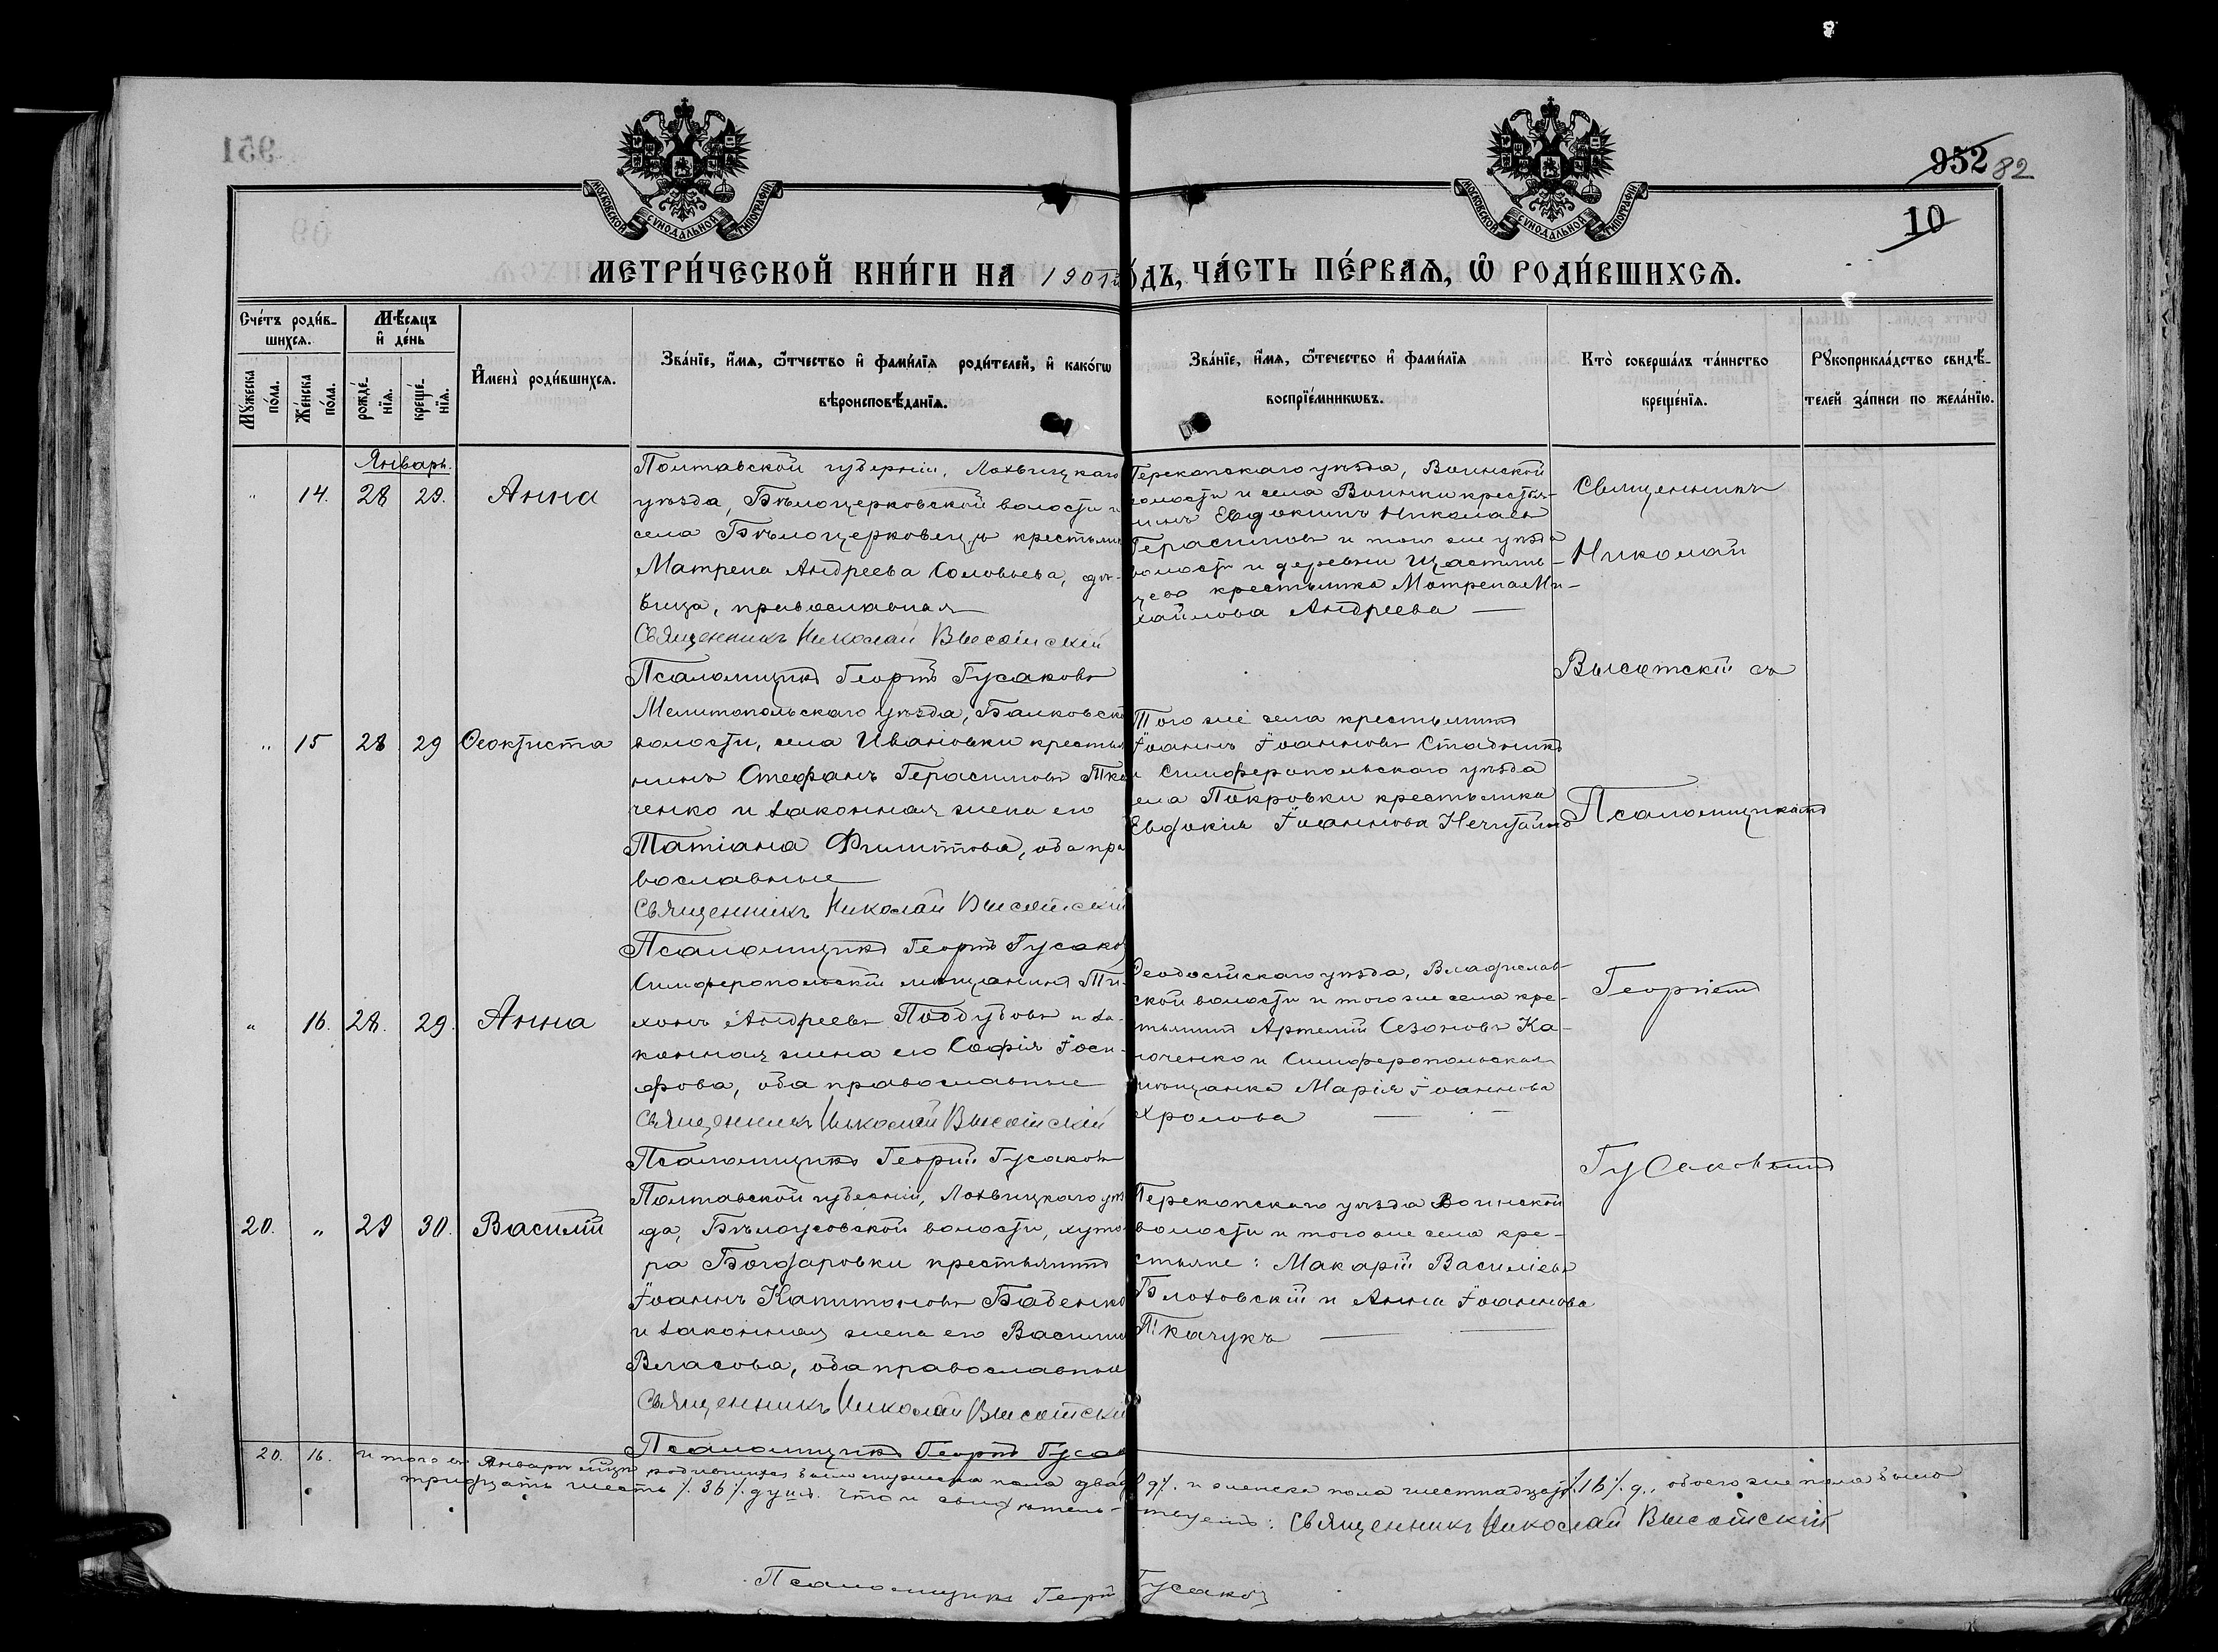 951
952 82
10
МОСКОВСКОЙ СѴНОДАЛЬНОЙ ТИПОГРАФІИ
МОСКОВСКОЙ СѴНОДАЛЬНОЙ ТИПОГРАФІИ
МЕТРИ́ЧЕСКОЙ КНИ́ГИ НА 1901 ГО́ДЪ, ЧА́СТЬ ПЕ́РВАѦ, Ѡ҆ РОДИ́ВШИХСѦ.
Сче́тъ роди́вшихсѧ.
Мꙋ́жеска по́ла.
Же́нска по́ла.
Мѣ́сѧцъ и҆ де́нь
рожде́нїѧ.
креще́нїѧ.
И҆мена̀ роди́вшихсѧ.
Зва́нїе, и҆́мѧ, ѻ҆́тчество и҆ фами́лїѧ роди́телей, и҆ како́гѡ
вѣроисповѣ́данїѧ.
Зва́нїе, и҆́мѧ, ѻ҆́течество и҆ фами́лїѧ
воспрїе́мникѡвъ.
Кто̀ соверша́лъ та́инство
креще́нїѧ.
Рꙋкоприкла́дство свидѣ́-
телей за́писи по жела́нїю.
Январь.
" 14. 28 29. Анна
Полтавской губерніи, Лохвицкаго
уѣзда, Бѣлоцерковской волости и
села Бѣлоцерковецъ крестьян
Матрена Андреева Соловьева, дѣ-
вица, православная
Священникъ Николай Высотскій
Псаломщикъ Георгій Гусаковъ
Перекопскаго уѣзда, Воинской
волости и села Воинки крестья-
нинъ Евдокимъ Николаевъ
Герасимовъ и того же уѣзда
волости и деревни
крестьянка Матрена Ми-
хайлова Андреева
Священникъ
Николай
Высотскій съ
Псаломщикомъ
Георгіемъ
Гусаковымъ
" 15 28 29 Ѳеоктиста
Мелитопольскаго уѣзда, Балковск
волости, села Ивановки крестья
нинъ Стефанъ Герасимовъ Тка
ченко и законная жена его
Татіана Филиппова, оба пра
вославные
Священникъ Николай Высотскій
Псаломщикъ Георгій Гусаков
Того же села крестьянинъ
Іоаннъ Іоанновъ Стадникъ
и Симферопольскаго уѣзда
села Покровки крестьянка
Евдокія Іоаннова Нечитайло
" 16. 28. 29. Анна
Симферопольскій мѣщанинъ Ти-
хонъ Андреевъ Поддубовъ и за-
конная жена его Софія Іоси-
фова, оба православные
Священникъ Николай Высотскій
Псаломщикъ Георгій Гусаковъ
Ѳеодосійскаго уѣзда, Владислав-
ской волости и того же села кре-
стьянинъ Артемій Сезоновъ Ка-
юченко и Симферопольская
мѣщанка Марія Іоаннова
Хромова
20. " 29 30. Василій
Полтавской губерніи, Лохвицкаго уѣз
да, Бѣлоусовской волости, хуто
ра Бондаровки крестьянинъ
Іоаннъ Капитоновъ Бабенко
и законная жена его Васили
Власова, оба православные
Священникъ Николай Высотскій
Псаломщикъ Георгій Гусак
Перекопскаго уѣзда Воинской
волости и того же села кре-
стьяне: Макарій Василіевъ
Блоховскій и Анна Іоаннова
Ткачукъ
20. 16. Итого въ Январѣ мѣцѣ родившихся было мужеска пола двад и женска пола шестнадцать /.16/. д., обоего же пола было
тридцать шесть /.36/. душъ. Что и свидѣтель- ствуемъ: Священникъ Николай Высотскій
Псаломщикъ Георгій Гусаковъ